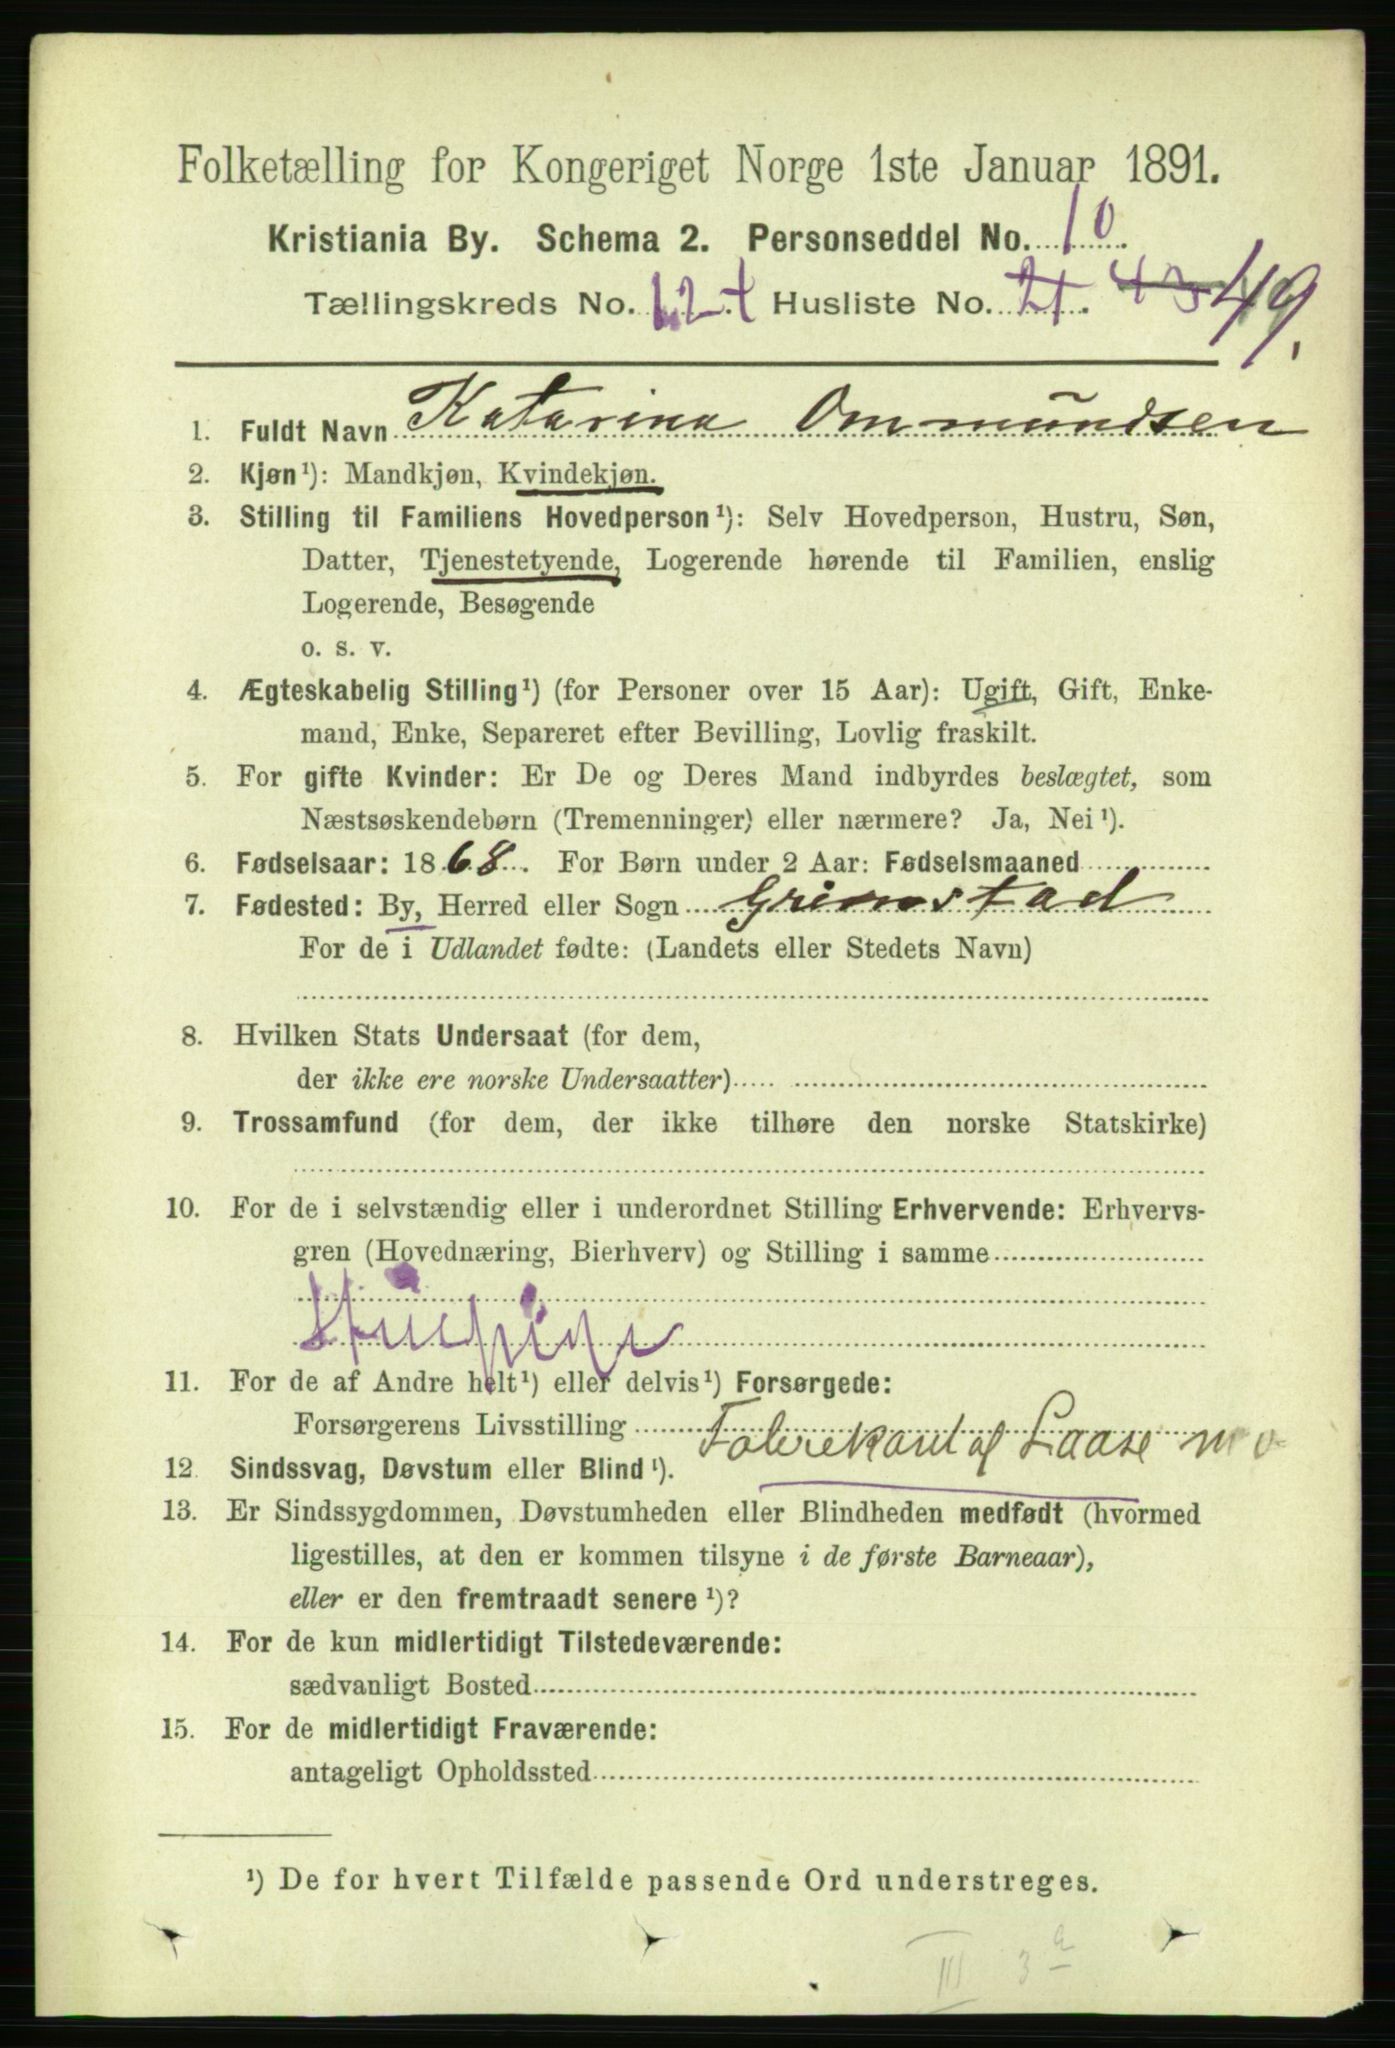 Folketælling for Kongeriget Norge 1ste Januar 1891.
Kristiania By. Schema 2. Personseddel No. 10.
Tællingskreds No. 124 Husliste No. 21. 43 49.
1. Fuldt Navn Katarina Ommundsen
2. Kjøn¹): Mandkjøn, Kvindekjøn.
3. Stilling til Familiens Hovedperson¹): Selv Hovedperson, Hustru, Søn,
Datter, Tjenestetyende, Logerende hørende til Familien, enslig
Logerende, Besøgende
o. s. v.
4. Ægteskabelig Stilling¹) (for Personer over 15 Aar): Ugift, Gift, Enke-
mand, Enke, Separeret efter Bevilling, Lovlig fraskilt.
5. For gifte Kvinder: Er De og Deres Mand indbyrdes beslægtet, som
Næstsøskendebørn (Tremenninger) eller nærmere? Ja, Nei¹).
6. Fødselsaar: 1868. For Børn under 2 Aar: Fødselsmaaned
7. Fødested: By, Herred eller Sogn Grimstad
For de i Udlandet fødte: (Landets eller Stedets Navn)
8. Hvilken Stats Undersaat (for dem,
der ikke ere norske Undersaatter)
9. Trossamfund (for dem, der ikke tilhøre den norske Statskirke)
10. For de i selvstændig eller i underordnet Stilling Erhvervende: Erhvervs-
gren (Hovednæring, Bierhverv) og Stilling i samme
Stuepige
11. For de af Andre helt¹) eller delvis¹) Forsørgede:
Forsørgerens Livsstilling Fabrekant af Laase m v
12. Sindssvag, Døvstum eller Blind¹).
13. Er Sindssygdommen, Døvstumheden eller Blindheden medfødt (hvormed
ligestilles, at den er kommen tilsyne i de første Barneaar),
eller er den fremtraadt senere¹)?
14. For de kun midlertidigt Tilstedeværende:
sædvanligt Bosted
15. For de midlertidigt Fraværende:
antageligt Opholdssted
¹) De for hvert Tilfælde passende Ord understreges.
III 3 a